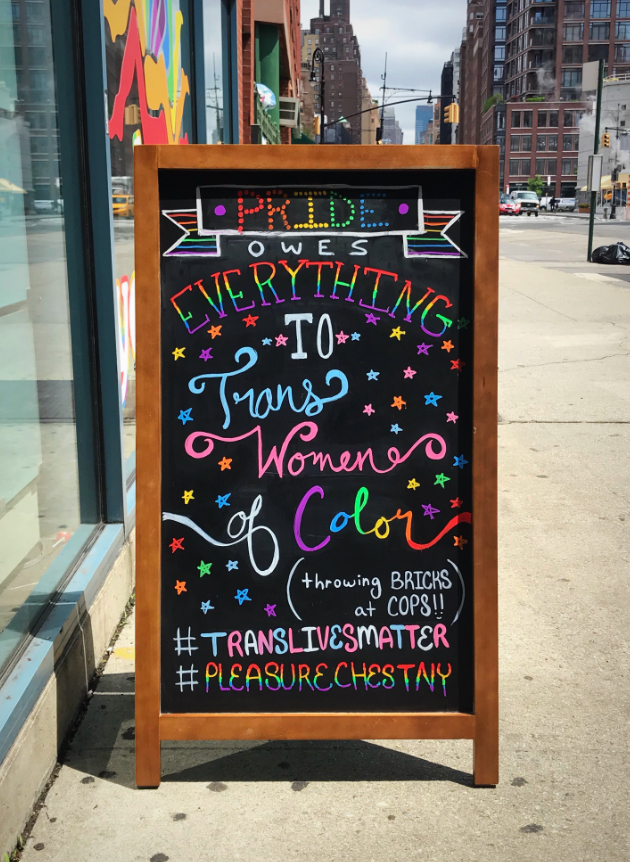 PRIDE
OWES
EVERYTHING
TO
Trans
Women
of Color
(throwing BRICKS
at COPS!!)
#TRANSLIVESMATTER
#PLEASURECHESTNY